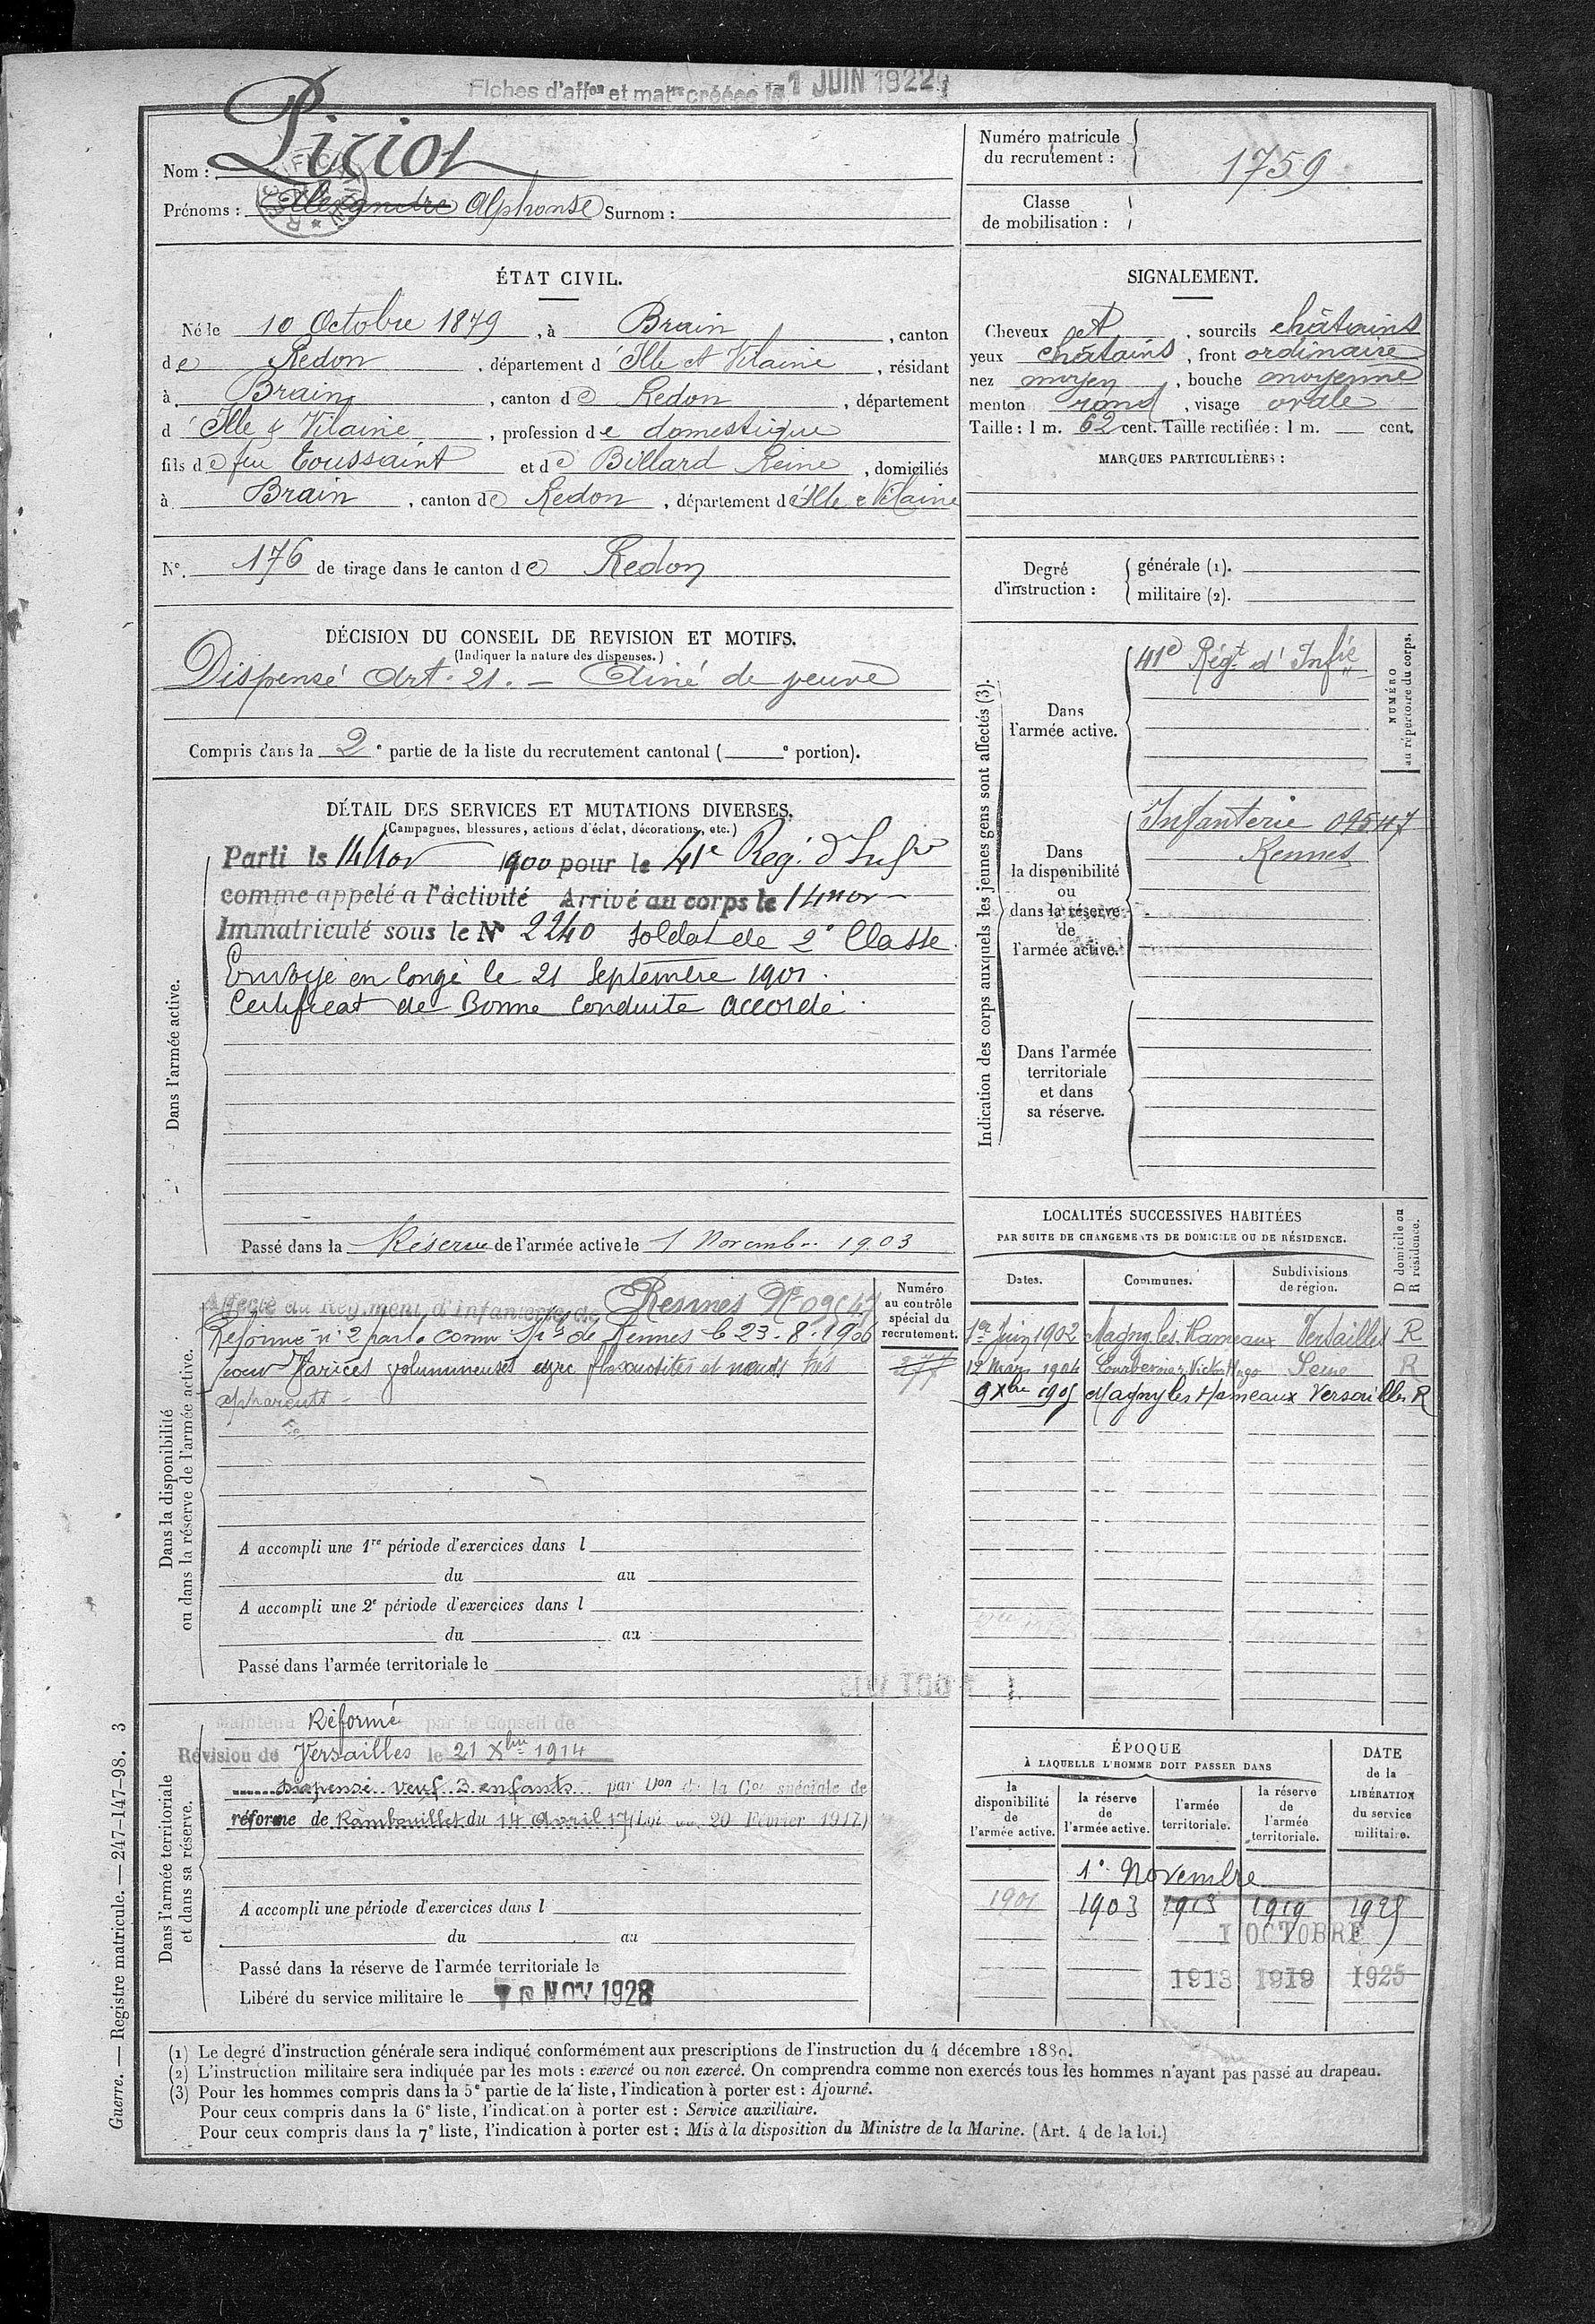 Fiches d'aff.on et mat.re créées le 1 JUIN 1922
Nom : Piriot
Prénoms : Alexandre Alphonse Surnom :
Numéro matricule
du recrutement : 1759
Classe
de mobilisation :
ÉTAT CIVIL.
Né le 10 Octobre 1879, à Brain, canton
de Redon, département d'Ille et Vilaine, résidant
à Brain, canton de Redon, département
d'Ille & Vilaine, profession de domestique
fils de feu Toussaint et de Billard Reine, domiciliés
à Brain, canton de Redon, département d'Ille & Vilaine
N° 176 de tirage dans le canton de Redon
SIGNALEMENT.
Cheveux et, sourcils châtains
yeux châtains, front ordinaire
nez moyen, bouche moyenne
menton rond, visage ovale
Taille : 1 m. 62 cent. Taille rectifiée : 1 m. cent.
MARQUES PARTICULIÈRES :
Degré
d'instruction :
générale (1).
militaire (2).
DÉCISION DU CONSEIL DE REVISION ET MOTIFS.
(Indiquer la nature des dispenses.)
Dispensé Art. 21. - Aîné de veuve
Compris dans la 2e partie de la liste du recrutement cantonal ( e portion).
DÉTAIL DES SERVICES ET MUTATIONS DIVERSES.
(Campagnes, blessures, actions d'éclat, décorations, etc.)
Dans l'armée active.
Parti le 14 Nov 1900 pour le 41e Reg. d'Infrie
comme appelé a l'activité Arrivé au corps le 14 nov
Immatriculé sous le N° 2240 Soldat de 2e Classe.
Envoyé en congé le 21 Septembre 1901.
Certificat de Bonne Conduite accordé.
Passé dans la Réserve de l'armée active le 1 Novembre 1903
Indication des corps auxquels les jeunes gens sont affectés (3).
Dans
l'armée active.
41e Régt d'Infie
NUMÉRO
au répertoire du corps.
Dans
la disponibilité
ou
dans la réserve
de
l'armée active.
Infanterie 09547
Rennes
Dans l'armée
territoriale
et dans
sa réserve.
LOCALITÉS SUCCESSIVES HABITÉES
PAR SUITE DE CHANGEMENTS DE DOMICILE OU DE RÉSIDENCE.
Dates. Communes. Subdivisions
de région.
D domicile ou
R résidence.
1er Juin 1902 Magny les Hameaux Versailles R
12 Mars 1904 Seine R
9 Xbre 1905 Magny les Hameaux Versailles R
Dans la disponibilité
ou dans la réserve de l'armée active.
Affecté au Régiment d'Infanterie de Rennes N° 09547
Réformé n° 2 par la comm de Rennes le 23-8-1906
pour Varices volumineuses avec flexuosités et nœuds très
apparents -
Numéro
au contrôle
spécial du
recrutement.
A accompli une 1re période d'exercices dans l
du au
A accompli une 2e période d'exercices dans l
du au
Passé dans l'armée territoriale le
Dans l'armée territoriale
et dans sa réserve.
Maintenu Réformé par le Conseil de
Révision de Versailles le 21 Xbre 1914
dispensé veuf 3 enfants par de la Con spéciale de
réforme de Rambouillet du 14 Avril 17 (Loi du 20 Février 1917)
A accompli une période d'exercices dans l
du au
Passé dans la réserve de l'armée territoriale le
Libéré du service militaire le NOV 1928
ÉPOQUE
À LAQUELLE L'HOMME DOIT PASSER DANS
la
disponibilité
de
l'armée active.
la réserve
de
l'armée active.
l'armée
territoriale.
la réserve
de
l'armée
territoriale.
DATE
de la
LIBÉRATION
du service
militaire.
1er Novembre
1901 1903 1913 1919 1925
1 OCTOBRE
1913 1919 1925
(1) Le degré d'instruction générale sera indiqué conformément aux prescriptions de l'instruction du 4 décembre 1889.
(2) L'instruction militaire sera indiquée par les mots : exercé ou non exercé. On comprendra comme non exercés tous les hommes n'ayant pas passé au drapeau.
(3) Pour les hommes compris dans la 5e partie de la liste, l'indication à porter est : Ajourné.
Pour ceux compris dans la 6e liste, l'indication à porter est : Service auxiliaire.
Pour ceux compris dans la 7e liste, l'indication à porter est : Mis à la disposition du Ministre de la Marine. (Art. 4 de la loi.)
Guerre. — Registre matricule. — 247-147-98. 3